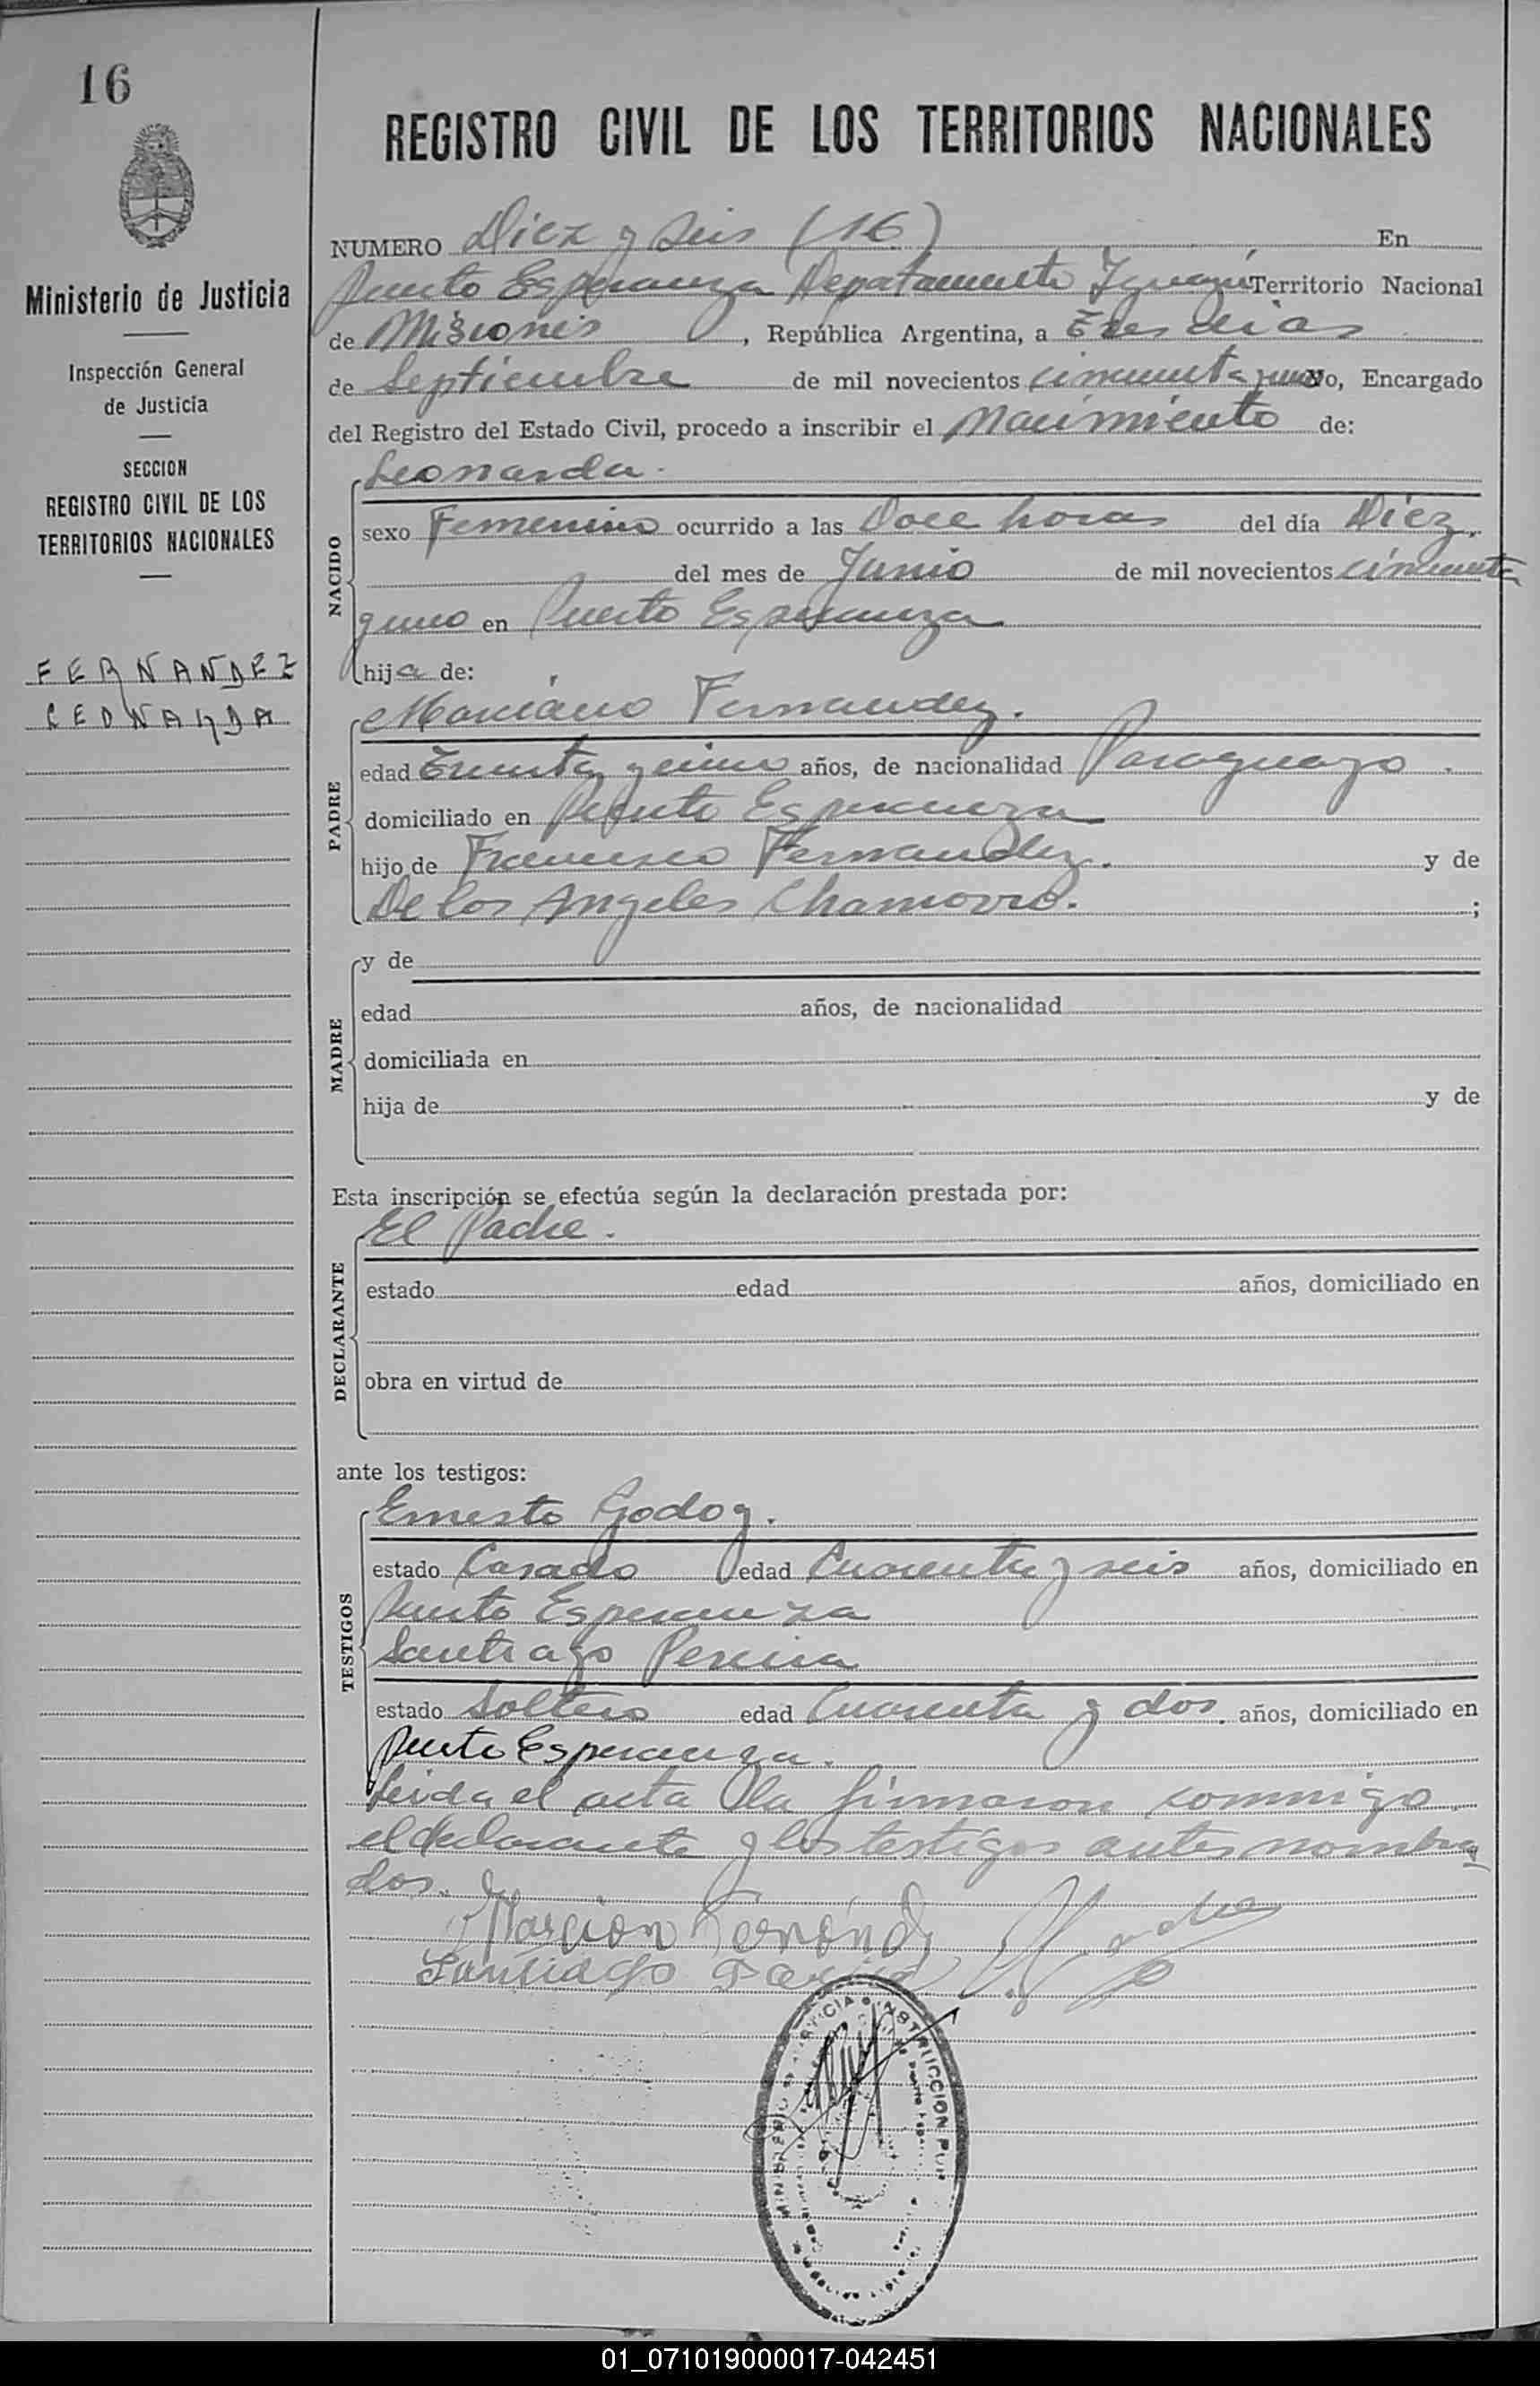 16
Ministerio de Justicia
Inspección General
de Justicia
SECCION
REGISTRO CIVIL DE LOS
TERRITORIOS NACIONALES
FERNANDEZ
LEONARDA
REGISTRO CIVIL DE LOS TERRITORIOS NACIONALES
NUMERO Diez y Seis (16) En
Puerto Esperanza Departamento Iguazú Territorio Nacional
de Misiones, República Argentina, a Tres dias
de Septiembre de mil novecientos cincuenta y uno Yo, Encargado
del Registro del Estado Civil, procedo a inscribir el Nacimiento de:
NACIDO
Leonarda.
sexo Femenino ocurrido a las Doce horas del día Diez.
del mes de Junio de mil novecientos cincuenta
y uno en Puerto Esperanza
hija de:
PADRE
Marciano Fernandez.
edad Treinta y cinco años, de nacionalidad Paraguayo.
domiciliado en Puerto Esperanza
hijo de Francisco Fernandez. y de
De los Angeles Chamorro. ;
MADRE
y de
edad años, de nacionalidad
domiciliada en
hija de y de
Esta inscripción se efectúa según la declaración prestada por:
DECLARANTE
El Padre.
estado edad años, domiciliado en
obra en virtud de
ante los testigos:
TESTIGOS
Ernesto Godoy.
estado Casado edad Cuarenta y seis años, domiciliado en
Puerto Esperanza
Santiago Pereira
estado Soltero edad Cuarenta y dos. años, domiciliado en
Puerto Esperanza.
Leida el acta la firmaron conmigo
el declarante y los testigos antes nombra
dos.
Santiago
01_071019000017-042451